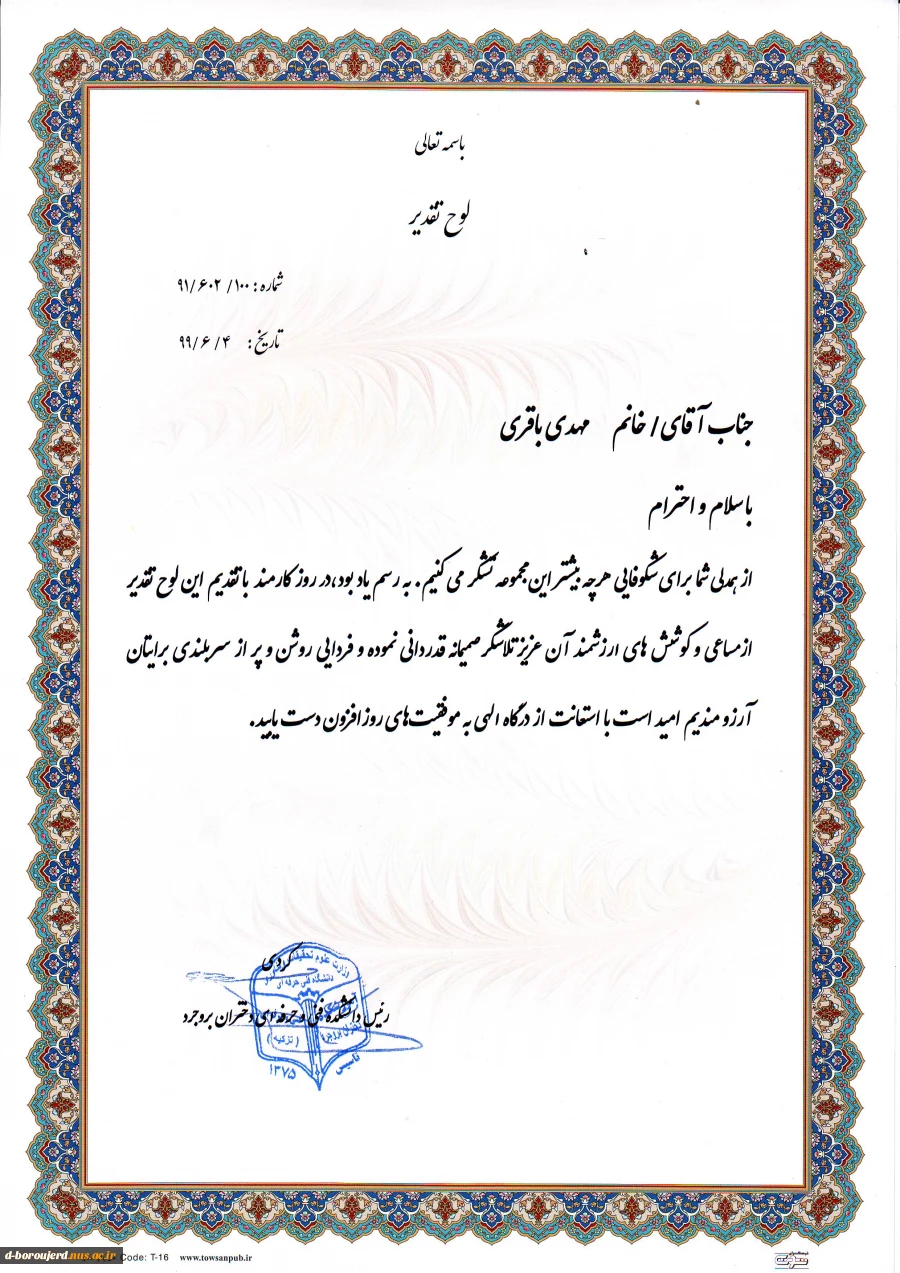 باسمه تعالی
لوح تقدیر
شماره: ۱۰۰/ ۶۰۲/ ۹۱
تاریخ: ۴ /۶ /۹۹
جناب آقای/ خانم مهدی باقری
با سلام و احترام
از همدلی شما برای شکوفایی هرچه بیشتر این مجموعه تشکر می کنیم. به رسم یاد بود،در روز کارمند با تقدیم این لوح تقدیر
از مساعی و کوشش های ارزشمند آن عزیز تلاشگر صمیمانه قدردانی نموده و فردایی روشن و پر از سربلندی برایتان
آرزو مندیم امید است با استعانت از درگاه الهی به موفقیت‌های روزافزون دست یابید.
وزارت علوم تحقیقات
دانشگاه فنی حرفه ای
رئیس دانشکده فنی و حرفه ای دختران بروجرد
تاسیس
۱۳۷۵
d-boroujerd.nus.ac.ir
Code: T-16 www.towsanpub.ir